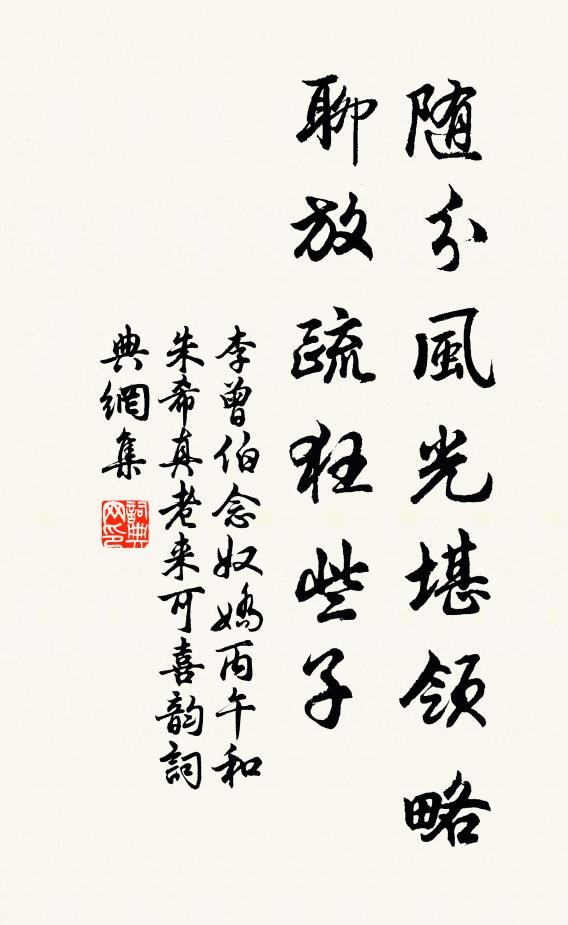 随分風光堪領略
聊放疏狂些子
李曾伯念奴嬌丙午和
朱希真老来可喜韵詞
典網集
詞典
网印